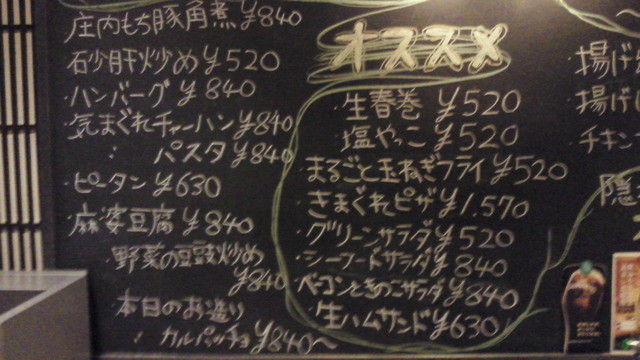 庄内もち豚角煮 ¥840
砂肝炒め ¥520
・ハンバーグ ¥840
・気まぐれチャーハン ¥840
： パスタ ¥840
・ピータン ¥630
・麻婆豆腐 ¥840
・野菜の豆豉炒め
¥840
・本日のお造り
： カルパッチョ ¥840〜
オススメ
・生春巻 ¥520
・塩やっこ ¥520
・まるごと玉ねぎフライ ¥520
・きまぐれピザ ¥1.570
・グリーンサラダ ¥520
・シーフードサラダ ¥840
・ベーコンときのこサラダ ¥840
・生ハムサンド ¥630
・揚げ
・揚げ
・チキン
隠